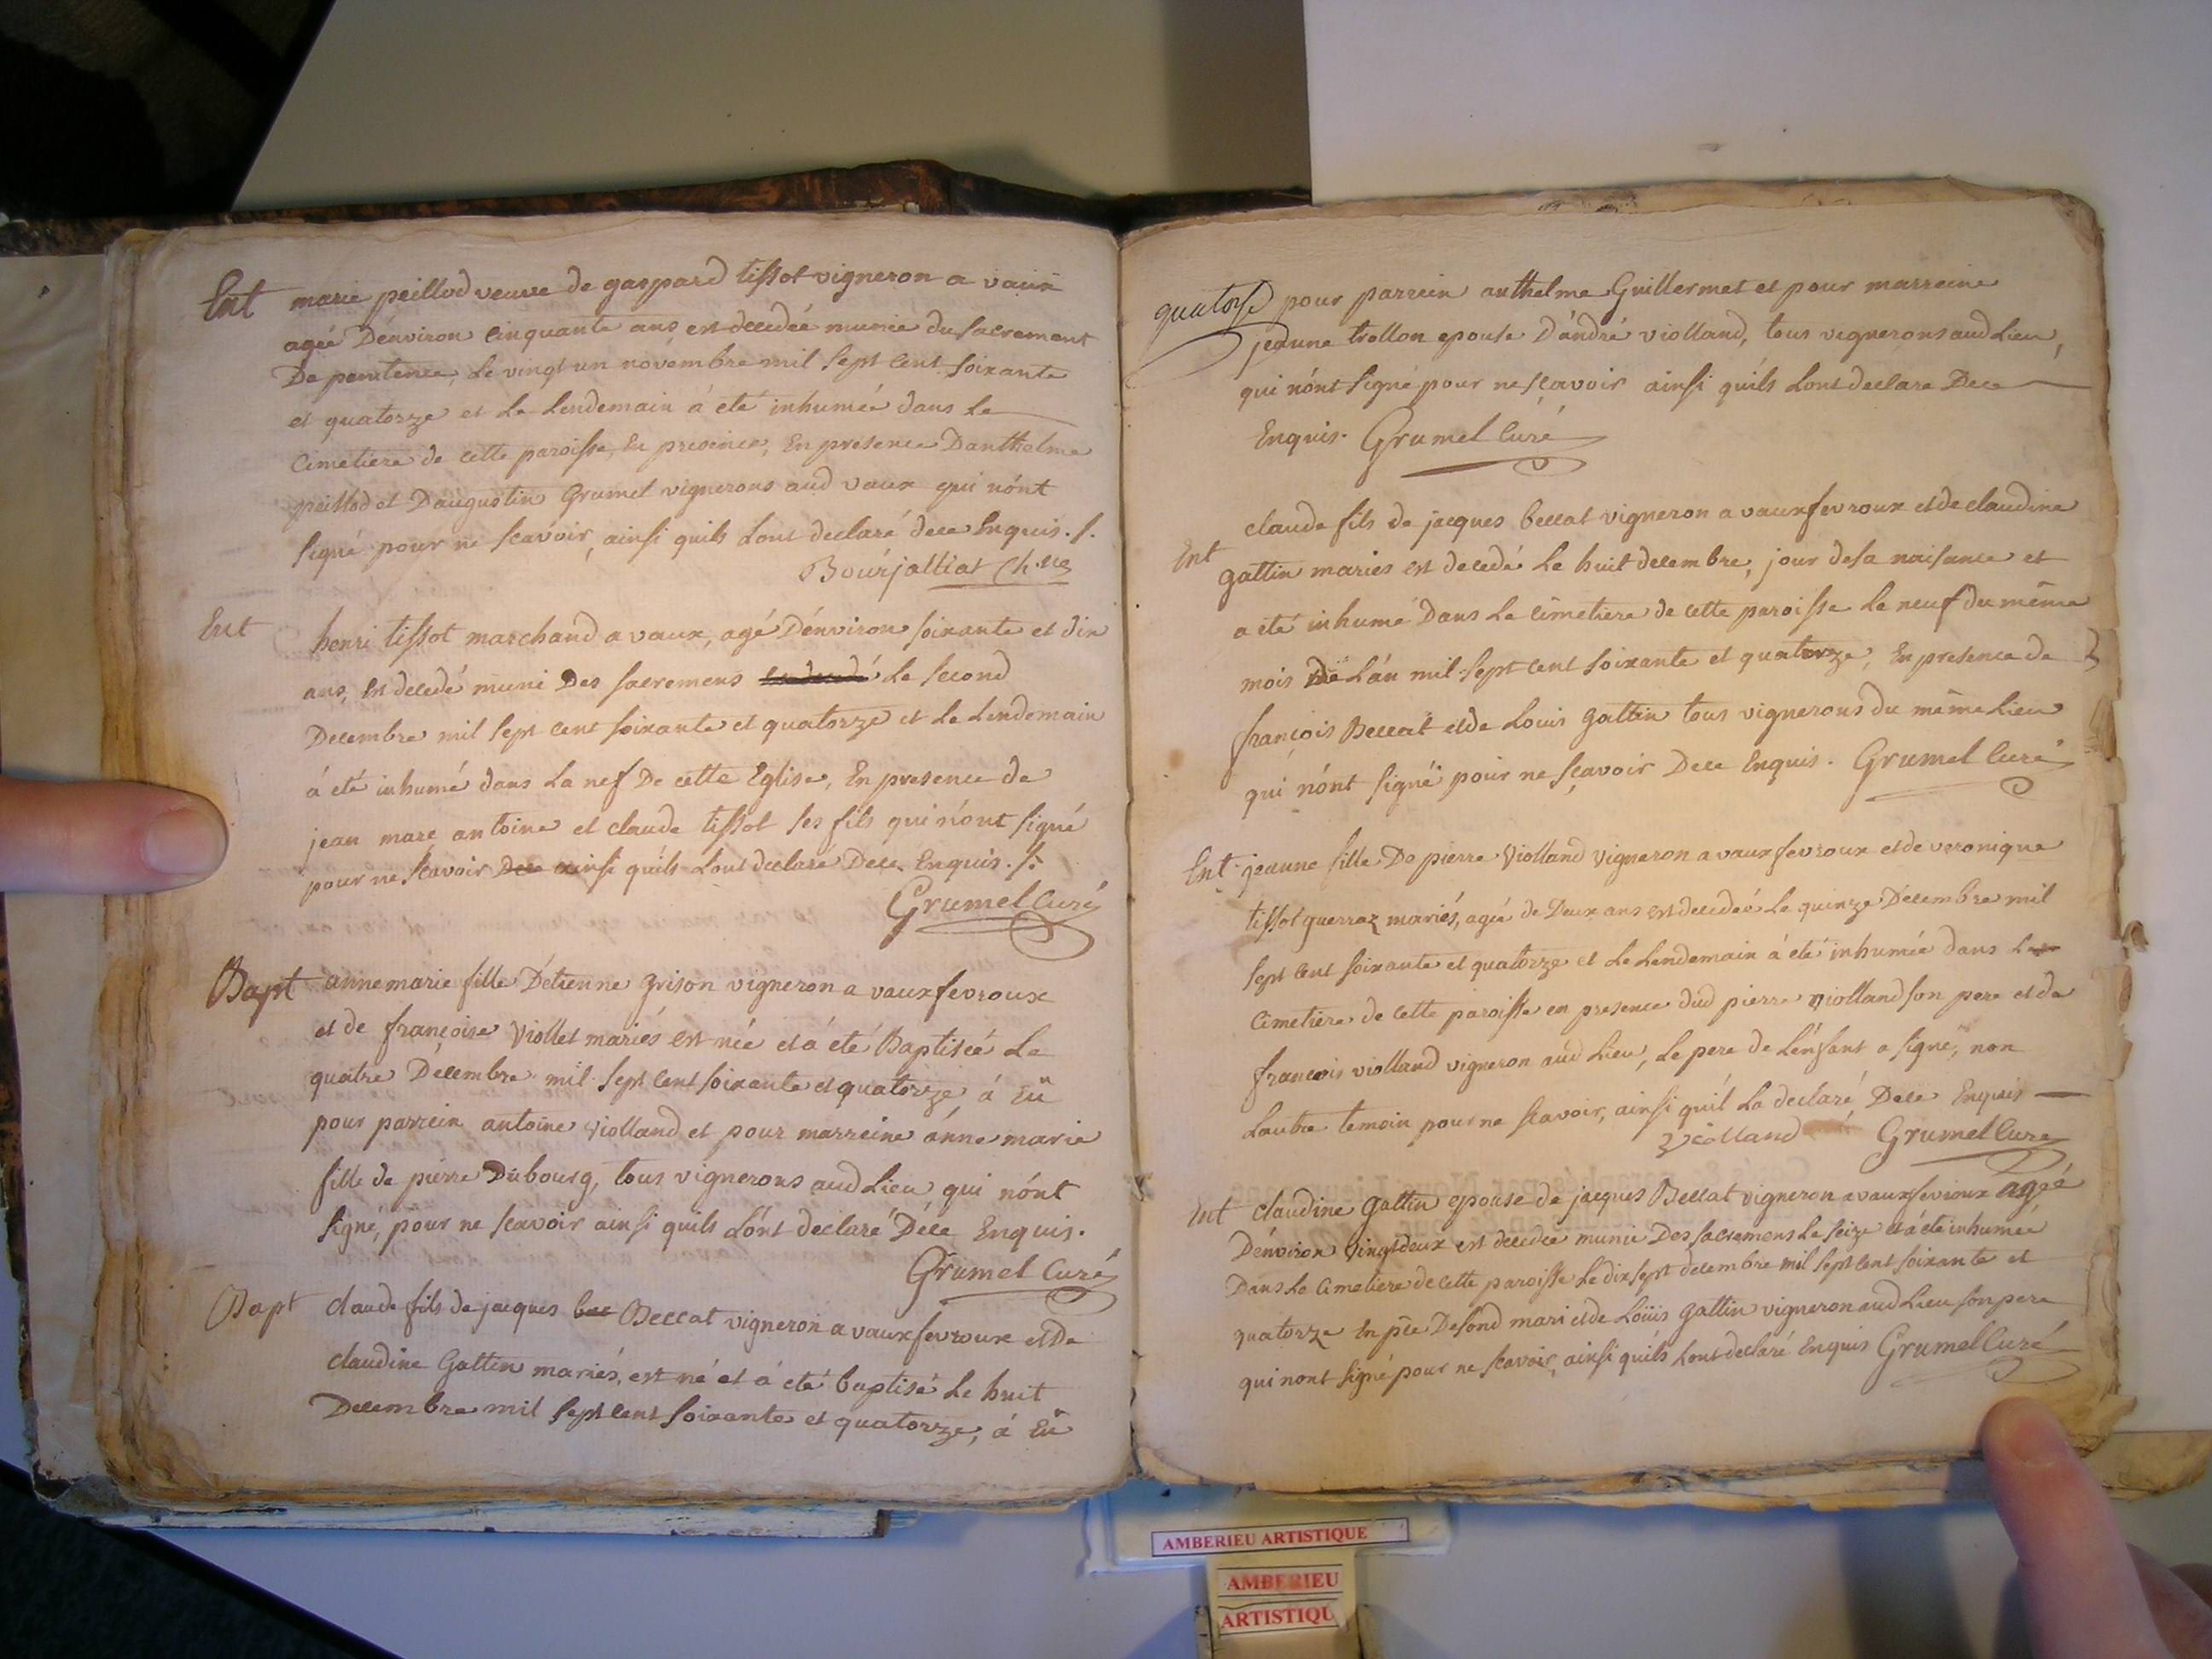 Ent marie peillod veuve de gaspard tissot vigneron a vaux
agée D'environ Cinquante ans, est decedée munie du sacrement
De penitence, Le vingt un novembre mil sept cent soixante
et quatorze et Le Lendemain á eté inhumée dans Le
Cimetiere de cette paroisse, En presence, En presence Danthelme
peillod et Daugustin Grumel vignerons aud vaux qui n'ónt
signé pour ne scavoir, ainsi quils Lont declaré dece Enquis. /.
Bourjalliat
Ent henri tissot marchand a vaux, agé D'énviron soixante et dix
ans, Est decedé muni Des sacremens Le second
Decembre mil sept cent soixante et quatorze et Le Lendemain
á eté inhumé dans La nef De cette Eglise, En presence de
jean marc antoine et claude tissot ses fils qui n'ónt signé
pour ne scavoir Dece ainsi quils Lont declaré Dece Enquis. /.
Grumel Curé
Bapt anne marie fille D'étienne grison vigneron a vauxfevroux
et de francoise Viollet mariés est née et á été Baptisée Le
quatre Décembre mil sept cent soixante et quatorze, á Eü
pour parrein antoine violland et pour marreine anne marie
fille de pierre Dubourg, tous vignerons aud Lieu qui n'ónt
signé, pour ne scavoir ainsi quils L'ónt declaré Déce Enquis.
Grumel Curé
Bapt claude fils de jacques bec Beccat vigneron a vauxfevroux et De
claudine Gattin mariés, est né et á eté baptisé Le huit
Decembre mil sept cent soixante et quatorze, á Eü
quatorse pour parrein anthelme Guillermet et pour marreine
jeanne trollon epouse D'ándré violland, tous vignerons aud Lieu,
qui n'ónt signé pour ne scavoir ainsi qu'ils Lont declare Dece
Enquis. Grumel Curé
claude fils de jacques beccat vigneron a vauxfevroux et de claudine
Ent gattin mariés est decedé Le huit decembre, jour de sa naisance et
a eté inhumé Dans Le cimetiere de cette paroisse Le neuf du même
mois de L'án mil sept cent soixante et quatorze, En presence de
francois Beccat et de Louis gattin tous vignerons du même Lieu
qui n'ónt signé pour ne scavoir Dece Enquis. Grumel Curé
Ent jeanne fille De pierre Violland vigneron a vauxfevroux et de veronique
tissot guerraz mariés, agée de Deux ans est decedée Le quinze Décembre mil
sept cent soixante et quatorze et Le Lendemain á eté inhumée dans Le
Cimetiere de cette paroisse en presence dud pierre violland son pere et de
francois violland vigneron aud Lieu, Le pere de L'énfant a signé, non
Lautre temoin pour ne scavoir, ainsi qu'il La declaré Dece Enquis
Violland Grumel Cure
Ent claudine gattin epouse de jacques Beccat vigneron a vauxfevroux agée
D'énviron vingt deux est decedée munie Des sacremens Le seize et á eté inhumée
Dans Le Cimetiere de cette paroisse Le dix sept decembre mil sept cent soixante et
quatorze En pce De sond mari et de Loüis gattin vigneron aud Lieu son pere
qui nont signé pour ne scavoir, ainsi qu'ils Lont declaré Enquis Grumel Curé
AMBERIEU ARTISTIQUE
AMBERIEU
ARTISTIQU